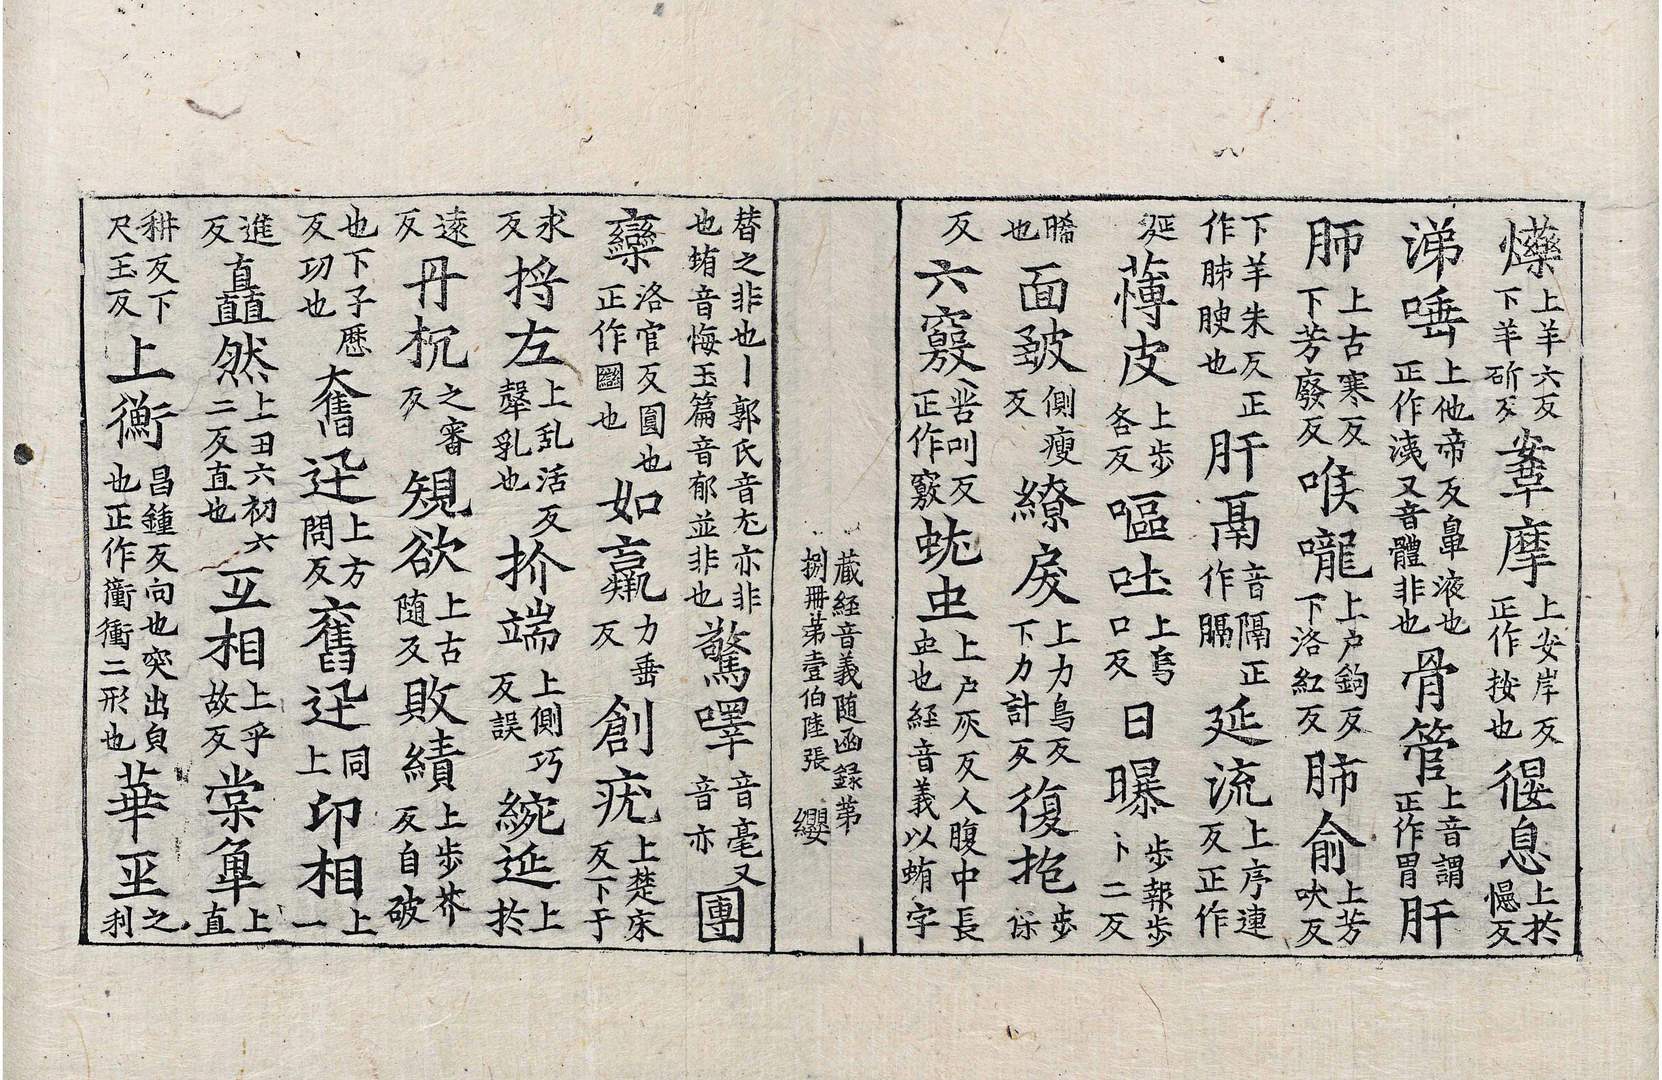 爍上羊六反下羊斫反鞌摩上安岸反正作按也偃息上扵憶反
涕唾上他帝反鼻液也正作洟又音體非也骨管上音謂正作胃肝
肺上古寒反下芳廢反喉嚨上户鉤反下洛紅反肺俞上芳吠反
下羊朱反正作肺腴也肝鬲音隔正作膈延流上序連反正作
㳄薄皮上步各反嘔吐上烏口反日曝步報步卜二反
睎也面皺側瘦反繚戾上力鳥反下力計反復抱步保
反六竅苦叫反正作竅蚘虫上户灰反人腹中長虫也経音義以蛕字
蔵経音義随函録第捌冊第壹伯陸張 纓
替之非也丨郭氏音尤亦非也蛕音悔玉篇音郁並非也驚嘷音毫又音亦團
欒洛官反圓也正作圞也如羸力垂反創疣上楚床反下于
求反捋左上乱活反㲉乳也抓端上側巧反誤綩莚上扵
逺反丹枕之審反規欲上古随反敗績上步芥反自破
也下子歷反功也奮迅上方問反奮迅同上印相上一
進反矗然上丑六初六二反直也互相上乎故反棠單上直
耕反下尺玉反上衝昌鍾反向也突出皃也正作衝衝二形也華坙之利